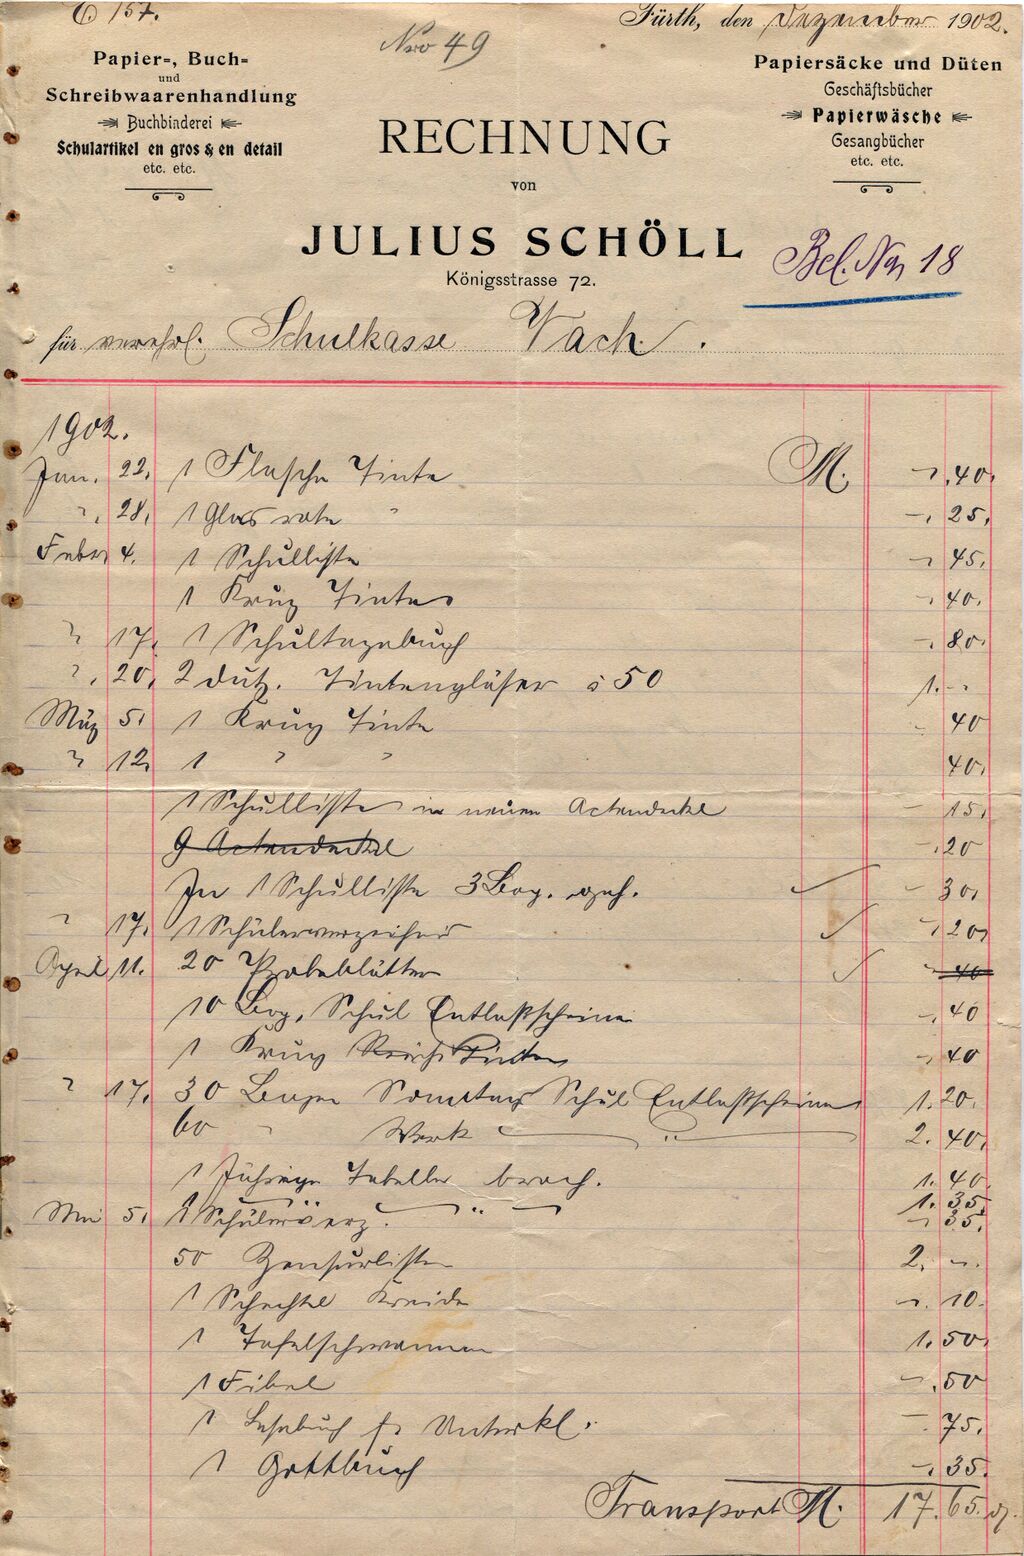 157.
Nro 49
Fürth, den Dezember 1902.
Papier-, Buch-
und
Schreibwaarenhandlung
Buchbinderei
Schulartikel en gros & en detail
etc. etc.
Papiersäcke und Düten
Geschäftsbücher
Papierwäsche
Gesangbücher
etc. etc.
RECHNUNG
von
JULIUS SCHÖLL
Königsstrasse 72.
Bel. No 18
für verehrl. Schulkasse Vach.
1902.
Jan. 22. 1 Flasche Tinte M. -.40.
". 28. 1 Glas rote " -. 25.
Febr. 4. 1 Schulliste -. 45.
1 Krug Tinte -. 40.
" 17. 1 Schultagebuch -. 80.
". 20. 2 dutz. Tintengläser à 50 1. -
März 5. 1 Krug Tinte 40
" 12. 1 " " 40.
1 Schulliste in neuen Actendeckel - 15.
9 Actendeckel -.20
In 1 Schulliste 3 Bog. geh. - 30.
" 17. 1 Schülerverzeichnis -. 20.
April 11. 20 Probeblätter - 40
10 Bog. Schul Entlaßscheine -. 40
1 Krug Tinten - 40
" 17. 30 Bogen Sonntags Schul Entlaßscheine 1. 20.
60 " Werk " 2. 40.
1 Jährige Tabellen broch. 1. 40.
1 " " 1. 35.
Mai 5. 1 Schülerverz. - 35.
50 Zensurlisten 2. -.
1 Schachtel Kreide -. 10.
1 Tafelschwamm 1. 50.
1 Fibel -. 50
1 Lesebuch f. Unterkl. - 75.
1 -. 35.
Transport M. 17. 65